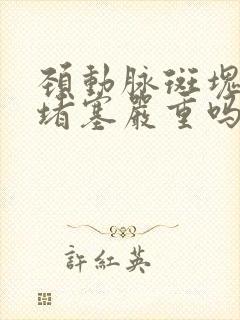 頚動脉斑塊
堵塞嚴重吗
許紅英